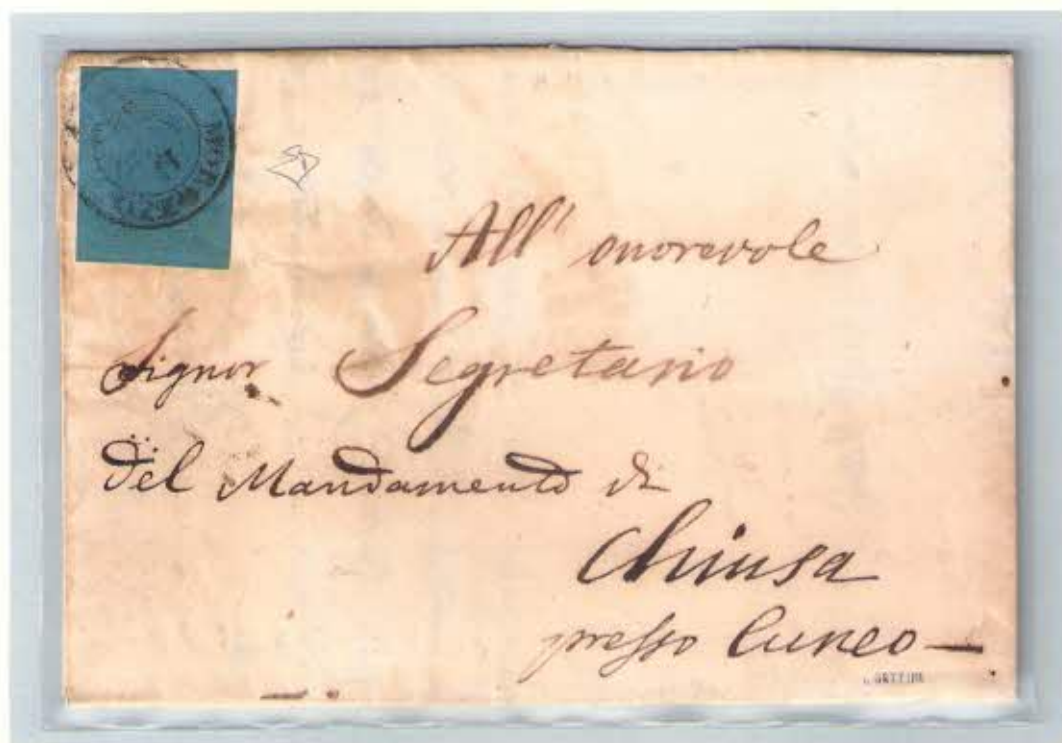 All' onorevole
Signor Segretario
del Mandamento di
Chiusa
presso Cuneo —